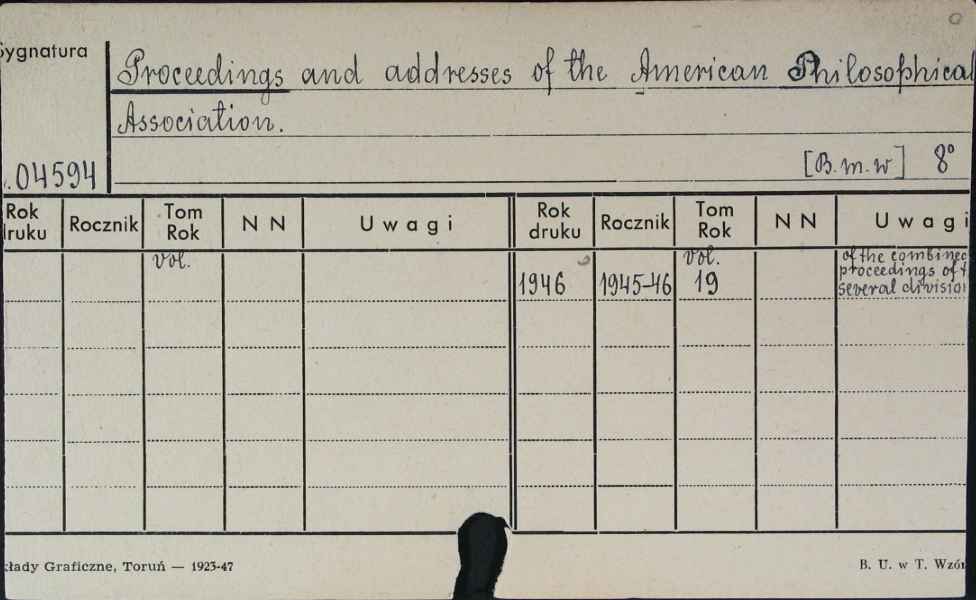 Sygnatura
Proceedings and addresses of the American Philosophical
Association.
.04594
[B.m.w] 8°
Rok druku Rocznik Tom Rok N N Uwagi Rok druku Rocznik Tom Rok N N Uwagi
vol. vol. of the combined
proceedings of t
1946 1945-46 19 several division
kłady Graficzne, Toruń — 1923-47 B. U. w T. Wzór